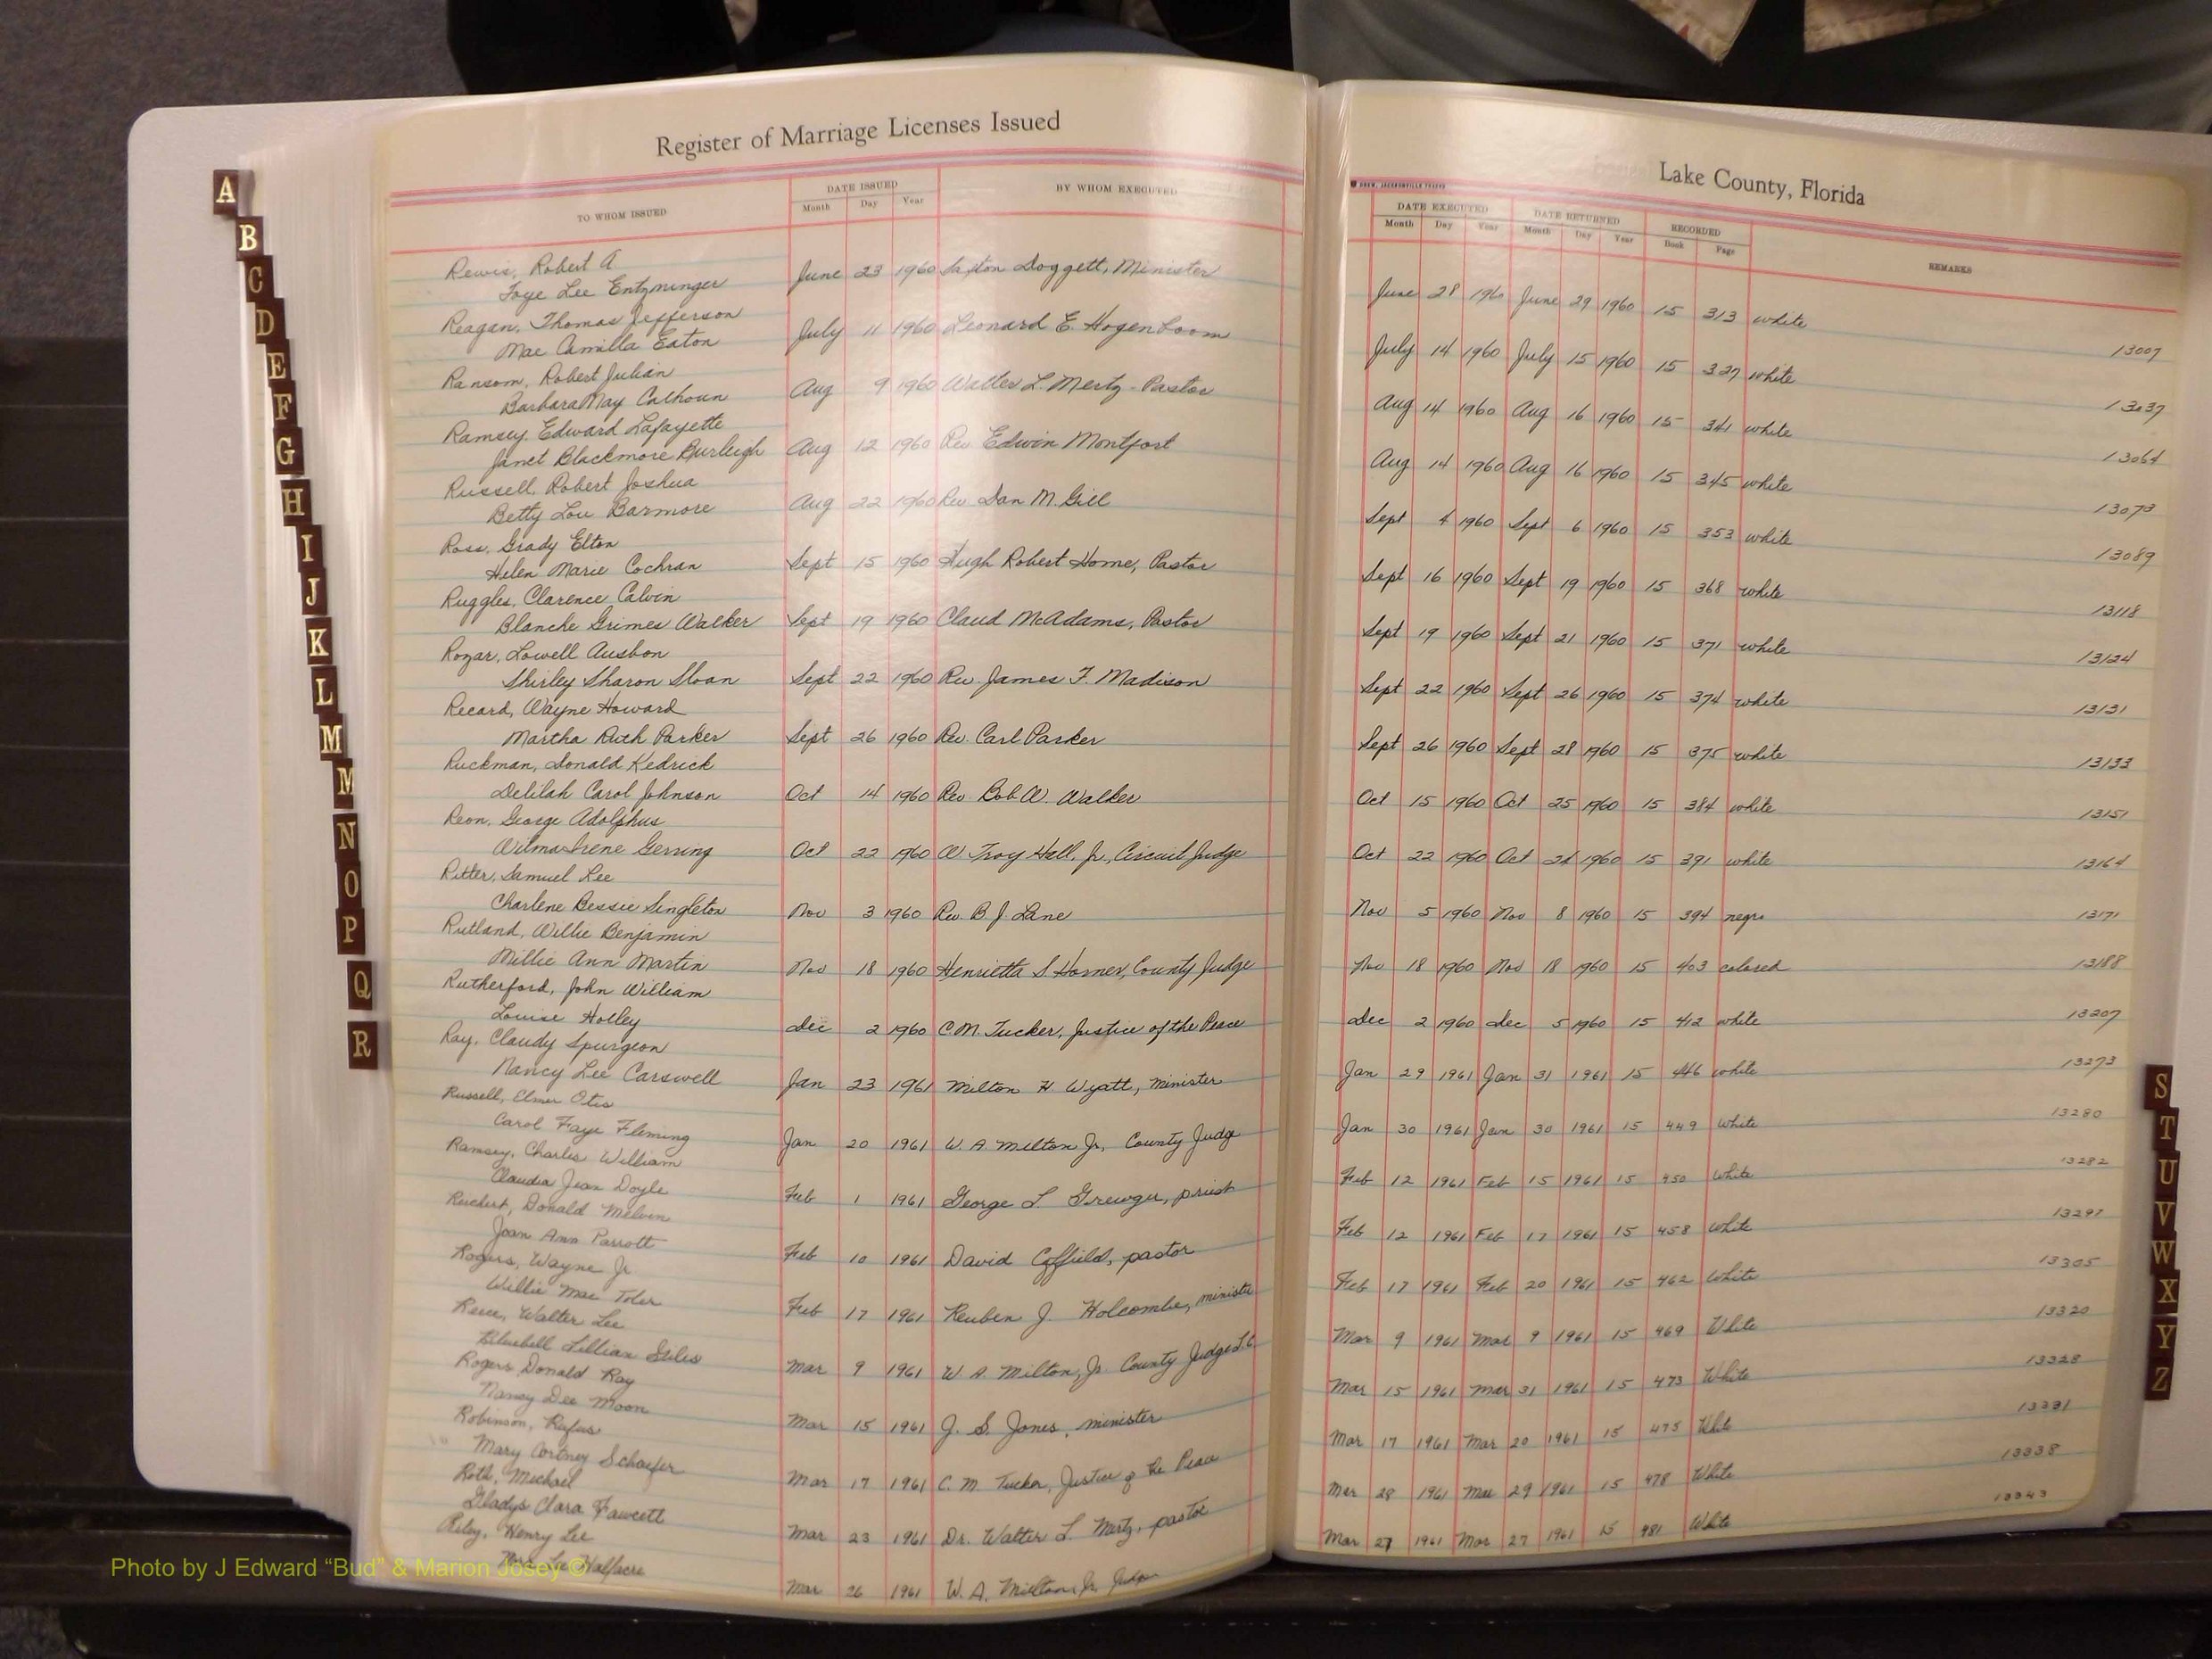 Register of Marriage Licenses Issued
Lake County, Florida
TO WHOM ISSUED
DATE ISSUED
Month Day Year
BY WHOM EXECUTED
DATE EXECUTED
Month Day Year
DATE RETURNED
Month Day Year
RECORDED
Book Page
REMARKS
Rewis, Robert A
Faye Lee Entzminger June 23 1960 Saxton Doggett, Minister June 28 1960 June 29 1960 15 313 white 13007
Reagan, Thomas Jefferson
Mae Camilla Eaton July 11 1960 Leonard E. Hogenboom July 14 1960 July 15 1960 15 327 white 13037
Ransom, Robert Julian
Barbara May Calhoun Aug 9 1960 Walter L. Mertz - Pastor Aug 14 1960 Aug 16 1960 15 341 white 13064
Ramsey, Edward Lafayette
Janet Blackmore Burleigh Aug 12 1960 Rev. Edwin Montfort Aug 14 1960 Aug 16 1960 15 345 white 13073
Russell, Robert Joshua
Betty Lou Barmore Aug 22 1960 Rev. Dan M. Gill Sept 4 1960 Sept 6 1960 15 353 white 13089
Ross, Grady Elton
Helen Marie Cochran Sept 15 1960 Hugh Robert Horne, Pastor Sept 16 1960 Sept 19 1960 15 368 white 13118
Ruggles, Clarence Calvin
Blanche Grimes Walker Sept 19 1960 Claud McAdams, Pastor Sept 19 1960 Sept 21 1960 15 371 white 13124
Rozar, Lowell Ausbon
Shirley Sharon Sloan Sept 22 1960 Rev. James F. Madison Sept 22 1960 Sept 26 1960 15 374 white 13131
Recard, Wayne Howard
Martha Ruth Parker Sept 26 1960 Rev. Carl Parker Sept 26 1960 Sept 28 1960 15 375 white 13133
Ruckman, Donald Kedrick
Delilah Carol Johnson Oct 14 1960 Rev. Bob W. Walker Oct 15 1960 Oct 25 1960 15 384 white 13151
Reon, George Adolphus
Wilma Irene Gerring Oct 22 1960 W. Troy Hall, Jr., Circuit Judge Oct 22 1960 Oct 24 1960 15 391 white 13164
Ritter, Samuel Lee
Charlene Bessie Singleton Nov 3 1960 Rev. B. J. Lane Nov 5 1960 Nov 8 1960 15 394 negro 13171
Rutland, Willie Benjamin
Millie Ann Martin Nov 18 1960 Henrietta S. Horner, County Judge Nov 18 1960 Nov 18 1960 15 403 colored 13188
Rutherford, John William
Louise Holley Dec 2 1960 C.M. Tucker, Justice of the Peace Dec 2 1960 Dec 5 1960 15 412 white 13207
Ray, Claudy Spurgeon
Nancy Lee Carswell Jan 23 1961 Milton H Wyatt, minister Jan 29 1961 Jan 31 1961 15 446 white 13273
Russell, Elmer Otis
Carol Faye Fleming Jan 20 1961 W. A. Milton Jr, County Judge Jan 30 1961 Jan 30 1961 15 449 white 13280
Ramsey, Charles William
Claudia Jean Doyle Feb 1 1961 George L. priest Feb 12 1961 Feb 15 1961 15 450 White 13282
Reichert, Donald Melvin
Joan Ann Parrott Feb 10 1961 David Coffield, pastor Feb 12 1961 Feb 17 1961 15 458 white 13297
Rogers, Wayne Jr
Willie Mae Toler Feb 17 1961 Reuben J. Holcombe, minister Feb 17 1961 Feb 20 1961 15 462 White 13305
Walter Lee
Bluebell Lillian Stiles Mar 9 1961 W. A. Milton, Jr. County Judge L.C. Mar 9 1961 Mar 9 1961 15 469 White 13320
Rogers, Donald Ray
Nancy Dee Moon Mar 15 1961 J. S. Jones, minister Mar 15 1961 Mar 31 1961 15 473 White 13328
Robinson, Rufus
Mary Cortney Schaefer Mar 17 1961 C. M. Tucker, Justice of the Peace Mar 17 1961 Mar 20 1961 15 475 White 13331
Roth, Michael
Gladys Clara Fawcett Mar 23 1961 Dr. Walter L. Mertz, pastor Mar 28 1961 Mar 29 1961 15 478 White 13338
Riley, Henry Lee
Lee Halfacre Mar 26 1961 W. A. Milton, Jr. Judge Mar 27 1961 Mar 27 1961 15 481 White 13343
A
B
C
D
E
F
G
H
I
J
K
L
M
M
N
O
P
Q
R
S
T
U
V
W
X
Y
Z
Photo by J Edward “Bud” & Marion Josey ©